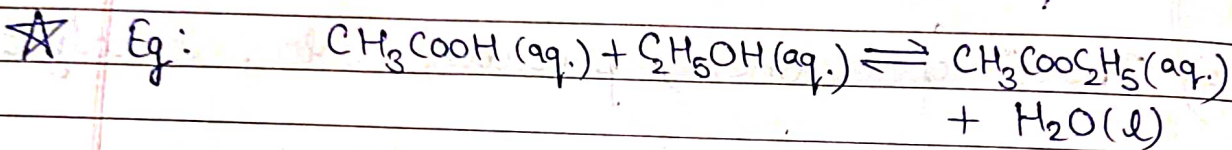 ☆ Eg: CH₃COOH (aq.) + C₂H₅OH (aq.) ⇌ CH₃COOC₂H₅ (aq.)
+ H₂O (l)